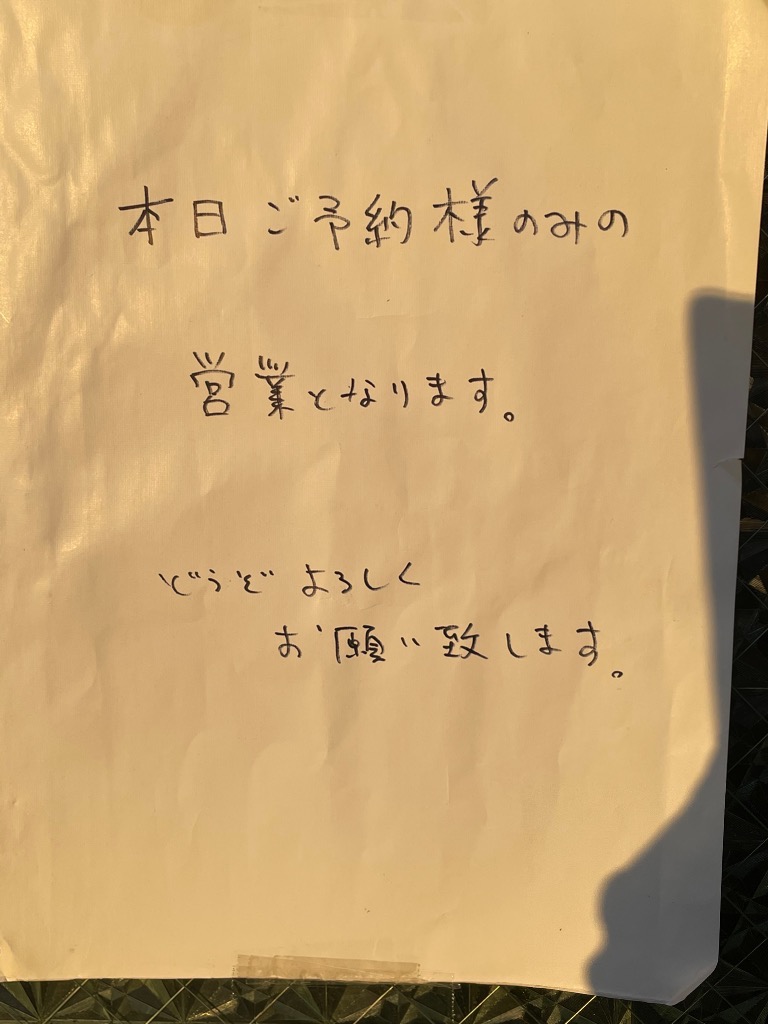 本日ご予約様のみの
営業となります。
どうぞよろしく
お願い致します。